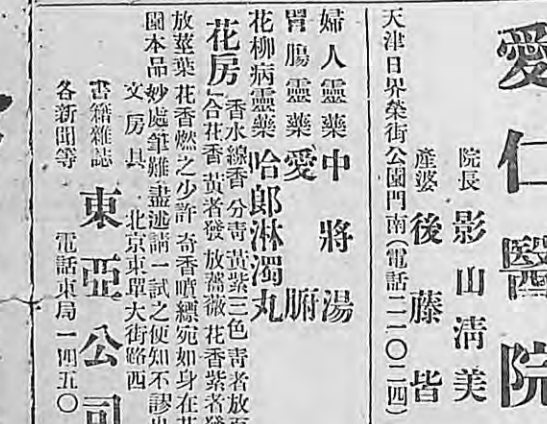 愛仁醫院
院長 影山清美
產婆 後藤皆
天津日界榮街公園門南(電話二一〇二四)
婦人靈藥 中將湯
胃腸靈藥 愛腑
花柳病靈藥 哈郎淋濁丸
花房 香水線香 分青黃紫三色 青者放百
合花香 黃者發放薔薇花香紫者發
放莖葉花香燃之少許 奇香噴縹宛如身在花
園本品妙處筆難盡述請一試之便知不謬也
文房具 北京東單大街路西
書籍雜誌 東亞公司
各新聞等 電話東局一四五〇